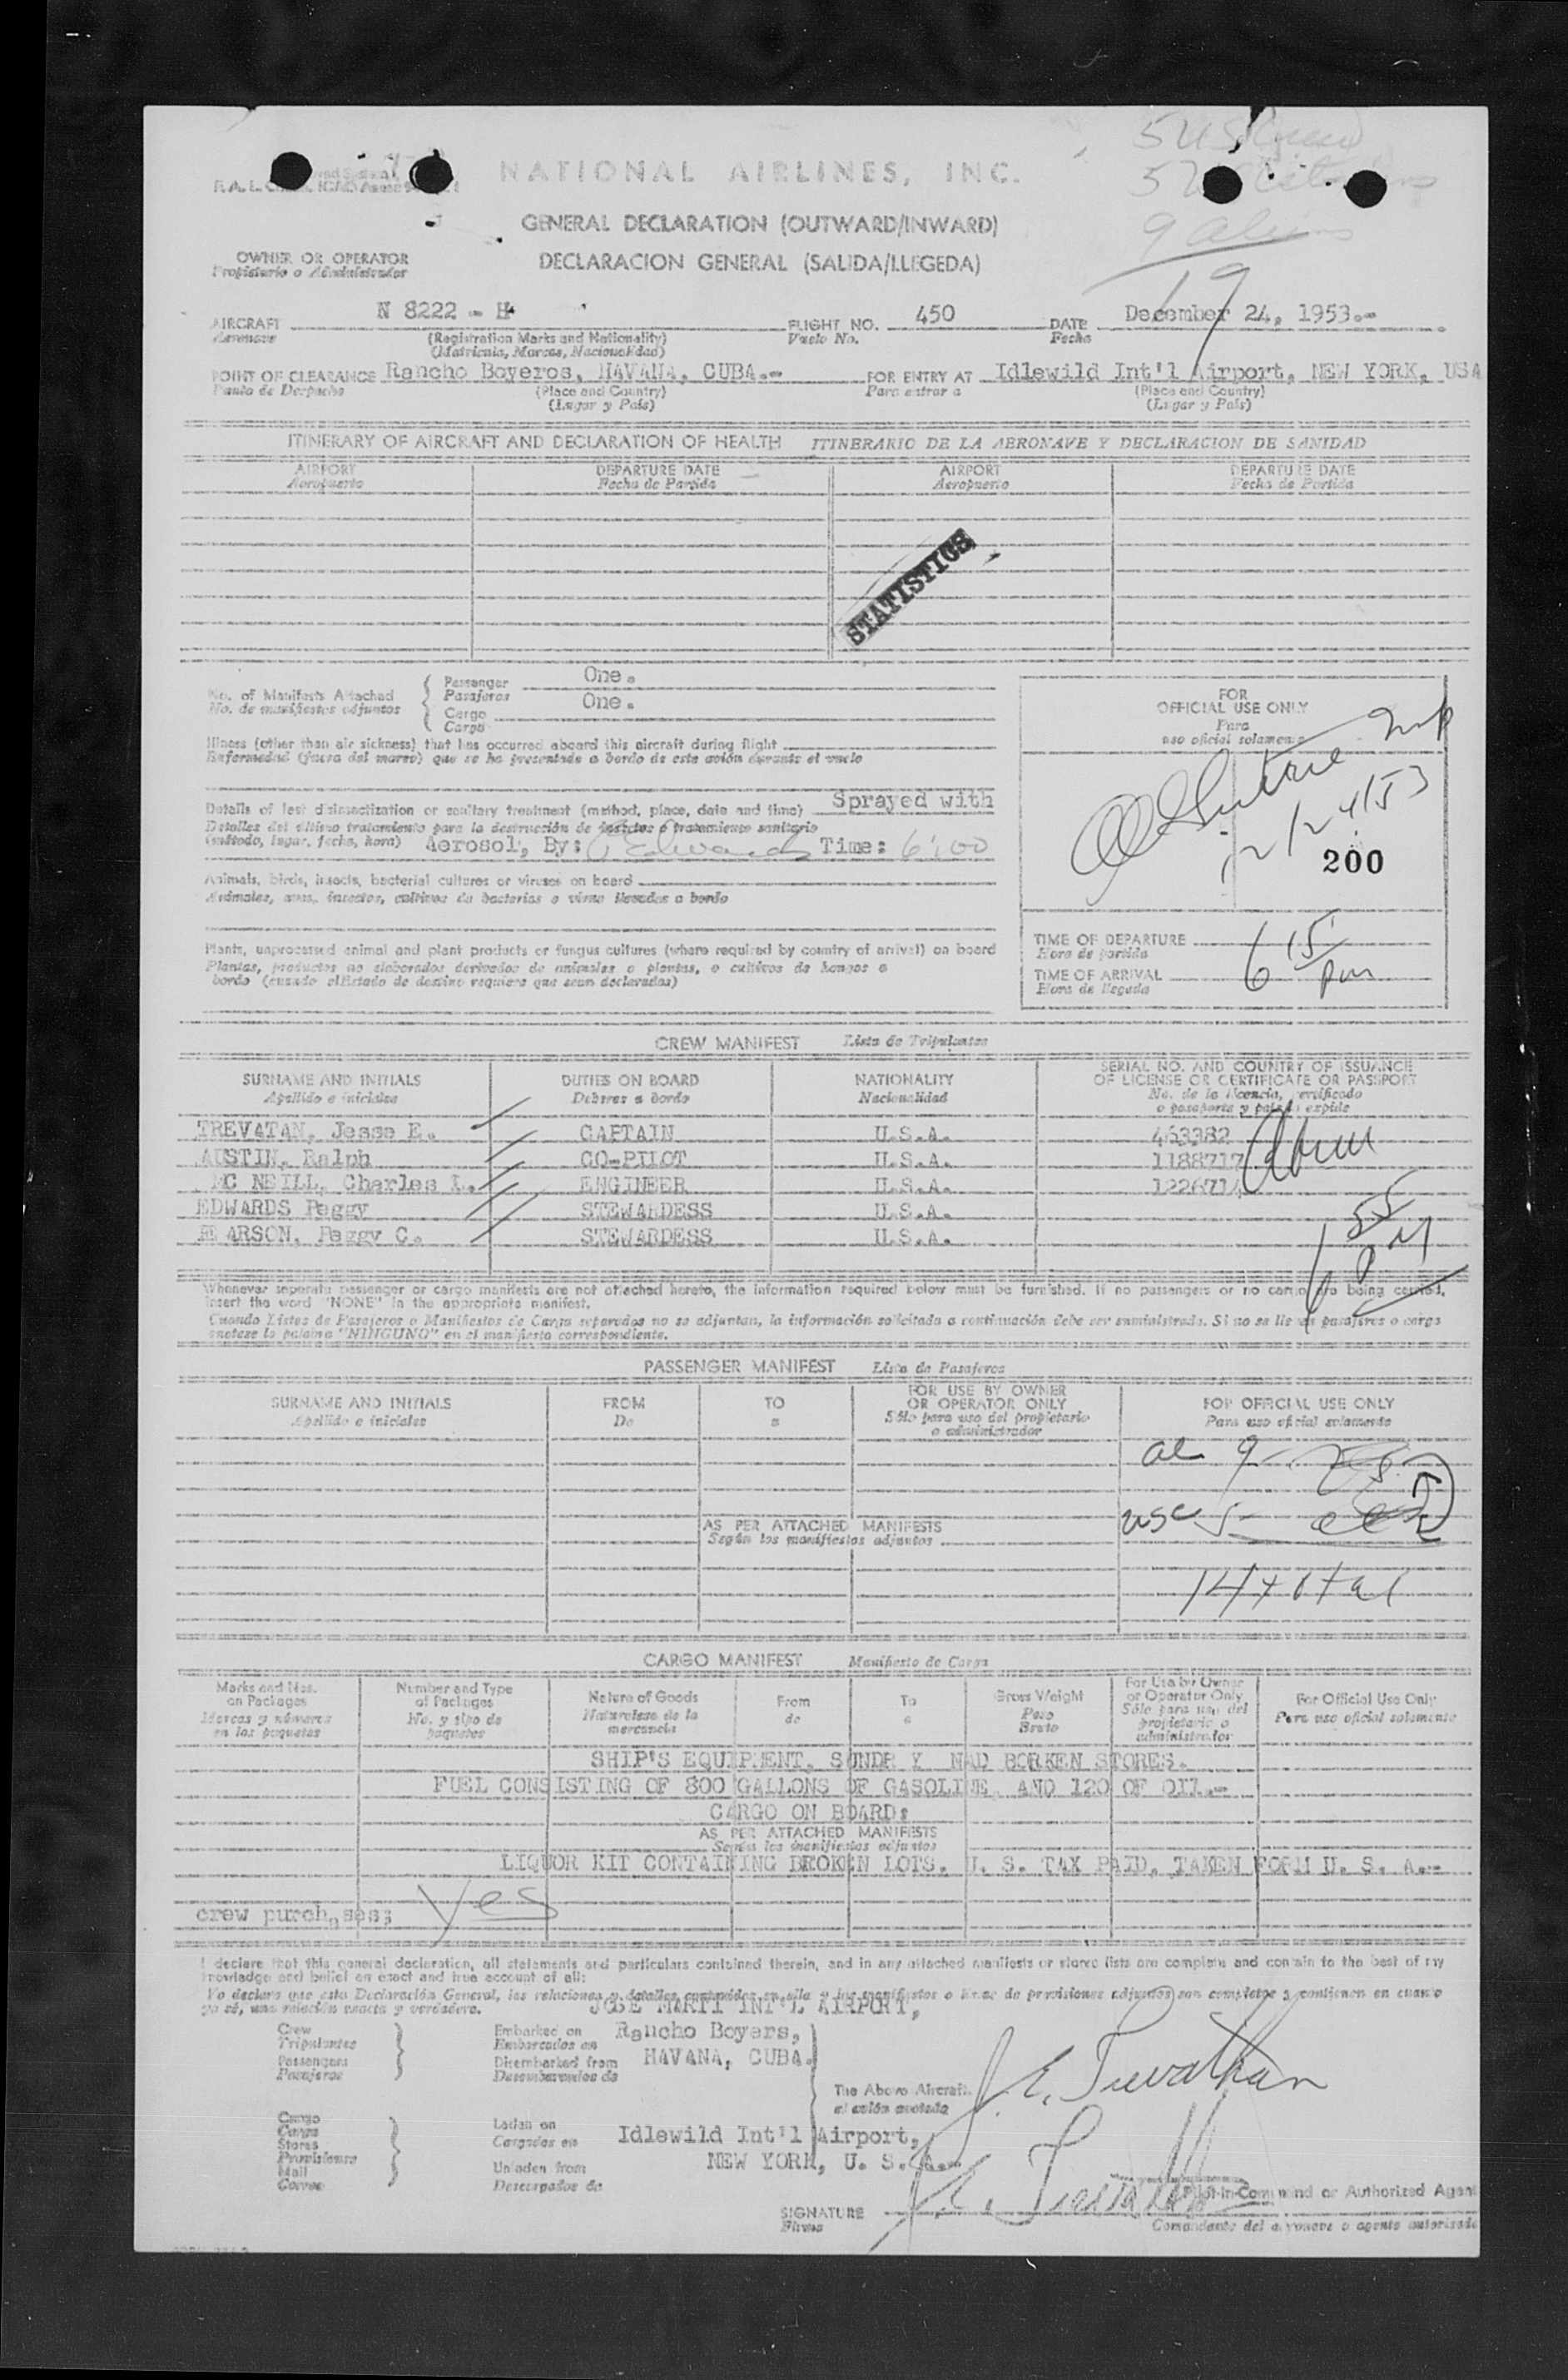 NATIONAL AIRLINES, INC.
GENERAL DECLARATION (OUTWARD/INWARD)
DECLARACION GENERAL (SALIDA/LLEGEDA)
OWNER OR OPERATOR
Propietario o Administrador
9 aliens
19
AIRCRAFT N 8222 - H FLIGHT NO. 450 DATE December 24, 1953.-
Aeronave (Registration Marks and Nationality) Vuelo No. Fecha
(Matricula, Marcas, Nacionalidad)
POINT OF CLEARANCE Rancho Boyeros, HAVANA, CUBA.- FOR ENTRY AT Idlewild Int'l Airport, NEW YORK, USA
Punto de Despacho (Place and Country) Para entrar a (Place and Country)
(Lugar y País) (Lugar y País)
ITINERARY OF AIRCRAFT AND DECLARATION OF HEALTH ITINERARIO DE LA AERONAVE Y DECLARACION DE SANIDAD
AIRPORT DEPARTURE DATE AIRPORT DEPARTURE DATE
Aeropuerto Fecha de Partida Aeropuerto Fecha de Partida
STATISTICS
No. of Manifests Attached Passenger One.
No. de manifiestos adjuntos Pasajeros
Cargo One.
Carga
Illness (other than air sickness) that has occurred aboard this aircraft during flight
Enfermedad (fuera del mareo) que se ha presentado a bordo de este avión durante el vuelo
Details of last disinsectization or sanitary treatment (method, place, date and time) Sprayed with
Detalles del último tratamiento para la destrucción de insectos o tratamiento sanitario
(método, lugar, fecha, hora) Aerosol, By: P Edwards Time: 6:00
Animals, birds, insects, bacterial cultures or viruses on board
Animales, aves, insectos, cultivos de bacterias o virus llevados a bordo
Plants, unprocessed animal and plant products or fungus cultures (where required by country of arrival) on board
Plantas, productos no elaborados derivados de animales o plantas, o cultivos de hongos a
bordo (cuando el Estado de destino requiere que sean declarados)
FOR
OFFICIAL USE ONLY
Para
uso oficial solamente
12/24/53
200
TIME OF DEPARTURE
Hora de partida
TIME OF ARRIVAL 6 15 pm
Hora de llegada
CREW MANIFEST Lista de Tripulantes
SURNAME AND INITIALS DUTIES ON BOARD NATIONALITY SERIAL NO. AND COUNTRY OF ISSUANCE
OF LICENSE OR CERTIFICATE OR PASSPORT
Apellido e iniciales Deberes a bordo Nacionalidad No. de la licencia, certificado
o pasaporte y país expide
TREVATAN, Jesse E. CAPTAIN U.S.A. 463382
AUSTIN, Ralph CO-PILOT U.S.A. 1188717
MC NEILL, Charles L. ENGINEER U.S.A. 122671
EDWARDS Peggy STEWARDESS U.S.A.
PEARSON, Peggy C. STEWARDESS U.S.A.
6 55 PM
Whenever seperate passenger or cargo manifests are not attached hereto, the information required below must be furnished. If no passengers or no cargo are being carried,
insert the word "NONE" in the appropriate manifest.
Cuando Listas de Pasajeros o Manifiestos de Carga separados no se adjuntan, la información solicitada a continuación debe ser suministrada. Si no se llevan pasajeros o carga
anótese la palabra "NINGUNO" en el manifiesto correspondiente.
PASSENGER MANIFEST Lista de Pasajeros
SURNAME AND INITIALS FROM TO FOR USE BY OWNER OR OPERATOR ONLY FOR OFFICIAL USE ONLY
Apellido e iniciales De a Sólo para uso del propietario o administrador Para uso oficial solamente
al 9
usc 5
14 total
AS PER ATTACHED MANIFESTS
Según los manifiestos adjuntos
CARGO MANIFEST Manifiesto de Carga
Marks and Nos. on Packages Number and Type of Packages Nature of Goods From To Gross Weight For Use by Owner or Operator Only For Official Use Only
Marcas y números en los paquetes No. y tipo de paquetes Naturaleza de la mercancía de a Peso Bruto Sólo para uso del propietario o administrador Para uso oficial solamente
SHIP'S EQUIPMENT, SUNDR Y NAD BORKEN STORES.
FUEL CONSISTING OF 800 GALLONS OF GASOLINE AND 120 OF OIL.-
CARGO ON BOARD:
AS PER ATTACHED MANIFESTS
Según los manifiestos adjuntos
LIQUOR KIT CONTAINING BROKEN LOTS. U. S. TAX PAID, TAKEN FORM U. S. A.-
crew purchases; Yes
I declare that this general declaration, all statements and particulars contained therein, and in any attached manifests or stores lists are complete and contain to the best of my
knowledge and belief an exact and true account of all:
Yo declaro que esta Declaración General, las relaciones y detalles contenidos en ella y los manifiestos o listas de provisiones adjuntos son completos y contienen en cuanto
yo sé, una relación exacta y verdadera.
JOSE MARTI INT'L AIRPORT,
Crew Embarked on Rancho Boyers,
Tripulantes Embarcados en
Passengers Disembarked from HAVANA, CUBA.
Pasajeros Desembarcados de
The Above Aircraft
el avión anotado
J. E. Trevathan
Cargo Laden on Idlewild Int'l Airport,
Carga Cargados en
Stores NEW YORK, U. S. A.-
Provisiones
Mail Unladen from
Correo Descargados de
SIGNATURE J. E. Trevathan Pilot-in-Command or Authorized Agent
Firma Comandante del aeronave o agente autorizado